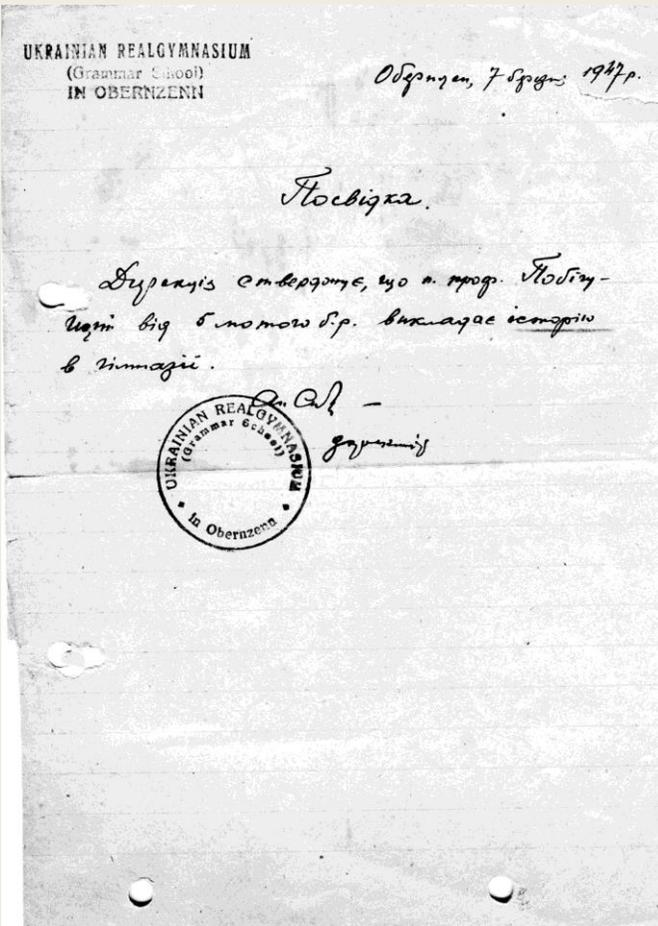 UKRAINIAN REALGYMNASIUM
(Grammar School)
IN OBERNZENN
Оберзцен, 7 березня 1947 р.
Посвідка.
Дирекція стверджує, що п. проф. Побігу-
щий від 5 лютого б.р. викладає історію
в гімназії.
дирекція
UKRAINIAN REALGYMNASIUM
(Grammar School)
in Obernzenn